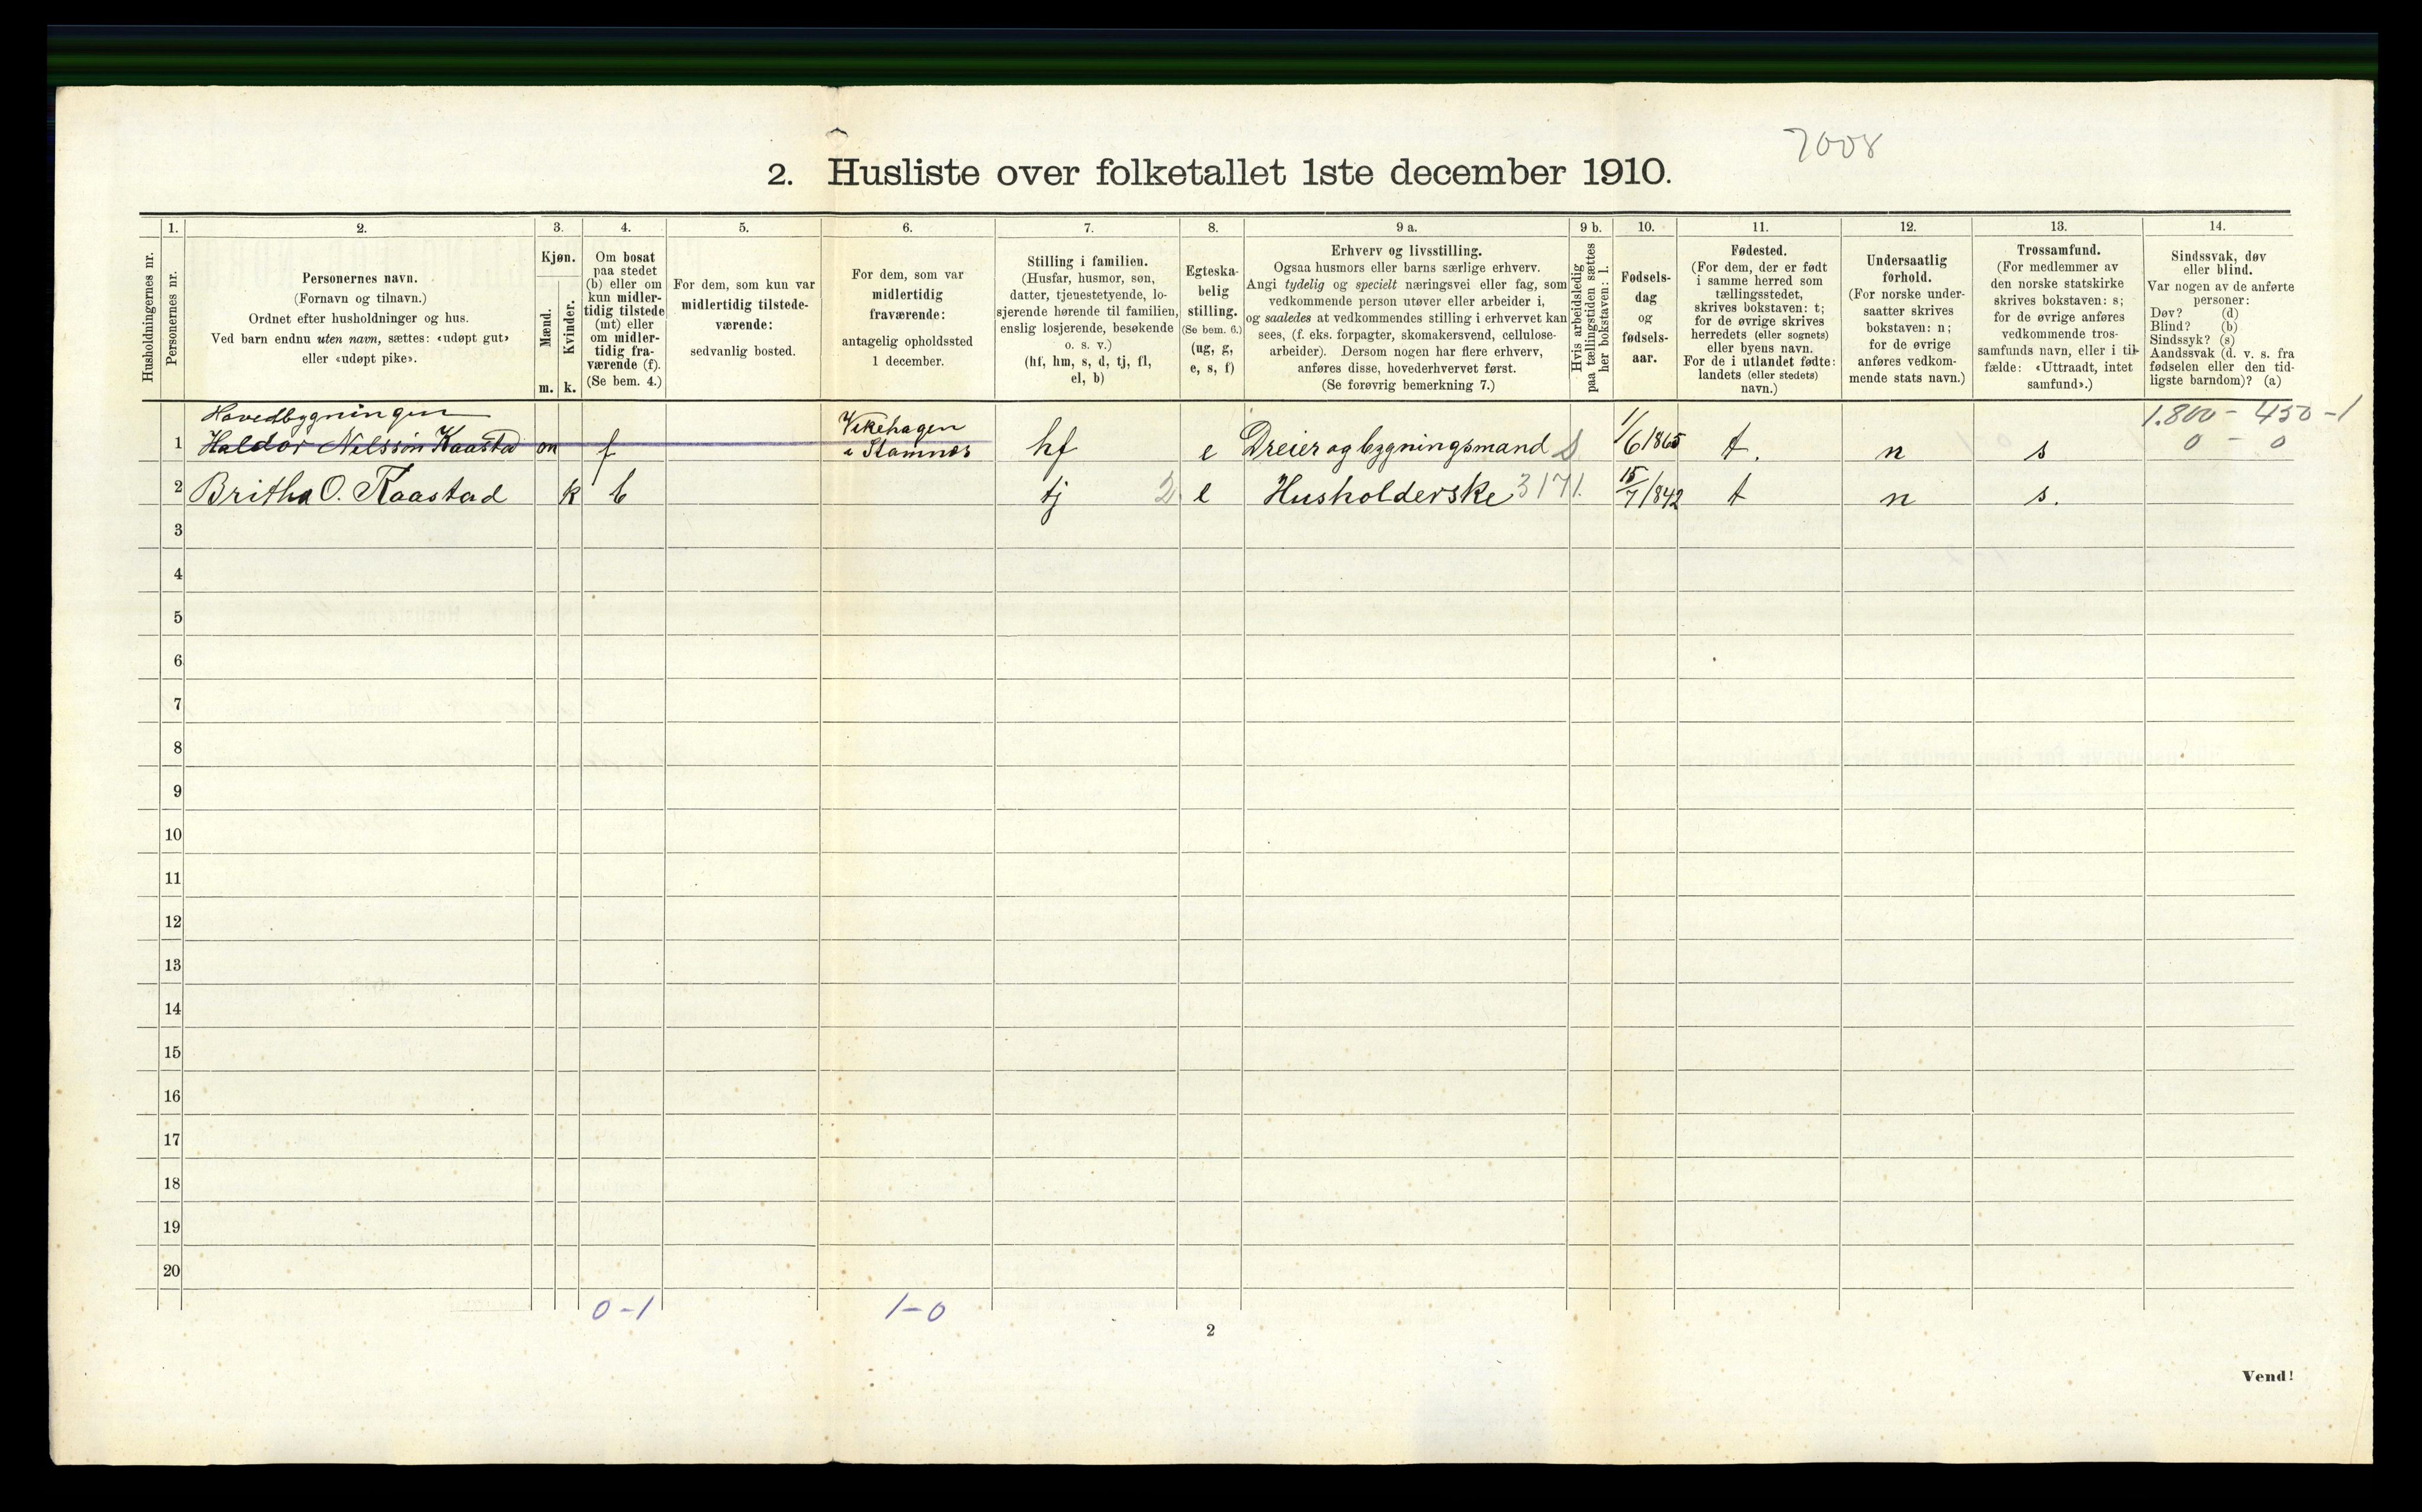 7008
2. Husliste over folketallet 1ste december 1910.
Husholdningernes nr.
1.
Personernes nr.
2.
Personernes navn.
(Fornavn og tilnavn.)
Ordnet efter husholdninger og hus.
Ved barn endnu uten navn, sættes: «udøpt gut»
eller «udøpt pike».
3.
Kjøn.
Mænd.
m.
Kvinder.
k.
4.
Om bosat
paa stedet
(b) eller om
kun midler-
tidig tilstede
(mt) eller
om midler-
tidig fra-
værende (f).
(Se bem. 4.)
5.
For dem, som kun var
midlertidig tilstede-
værende:
sedvanlig bosted.
6.
For dem, som var
midlertidig
fraværende:
antagelig opholdssted
1 december.
7.
Stilling i familien.
(Husfar, husmor, søn,
datter, tjenestetyende, lo-
sjerende hørende til familien,
enslig losjerende, besøkende
o. s. v.)
(hf, hm, s, d, tj, fl,
el, b)
8.
Egteska-
belig
stilling.
(Se bem. 6.)
(ug, g,
e, s, f)
9 a.
Erhverv og livsstilling.
Ogsaa husmors eller barns særlige erhverv.
Angi tydelig og specielt næringsvei eller fag, som
vedkommende person utøver eller arbeider i,
og saaledes at vedkommendes stilling i erhvervet kan
sees, (f. eks. forpagter, skomakersvend, cellulose-
arbeider). Dersom nogen har flere erhverv,
anføres disse, hovederhvervet først.
(Se forøvrig bemerkning 7.)
9 b.
Hvis arbeidsledig
paa tællingstiden sættes
her bokstaven: l.
10.
Fødsels-
dag
og
fødsels-
aar.
11.
Fødested.
(For dem, der er født
i samme herred som
tællingsstedet,
skrives bokstaven: t;
for de øvrige skrives
herredets (eller sognets)
eller byens navn.
For de i utlandet fødte:
landets (eller stedets)
navn.)
12.
Undersaatlig
forhold.
(For norske under-
saatter skrives
bokstaven: n;
for de øvrige
anføres vedkom-
mende stats navn.)
13.
Trossamfund.
(For medlemmer av
den norske statskirke
skrives bokstaven: s;
for de øvrige anføres
vedkommende tros-
samfunds navn, eller i til-
fælde: «Uttraadt, intet
samfund».)
14.
Sindssvak, døv
eller blind.
Var nogen av de anførte
personer:
Døv? (d)
Blind? (b)
Sindssyk? (s)
Aandssvak (d. v. s. fra
fødselen eller den tid-
ligste barndom)? (a)
Hovedbygningen
1.800 - 450 - 1
1 Haldor Nilsson Kaastad m f Vikehagen i Stamnes hf e Dreier og bygningsmand S 1/6 1865 t. n s 0 - 0
2 Britha O. Kaastad k b tj 2 e Husholderske 3171. 15/7 1842 t n s.
3
4
5
6
7
8
9
10
11
12
13
14
15
16
17
18
19
20
0-1 1-0
2
Vend!